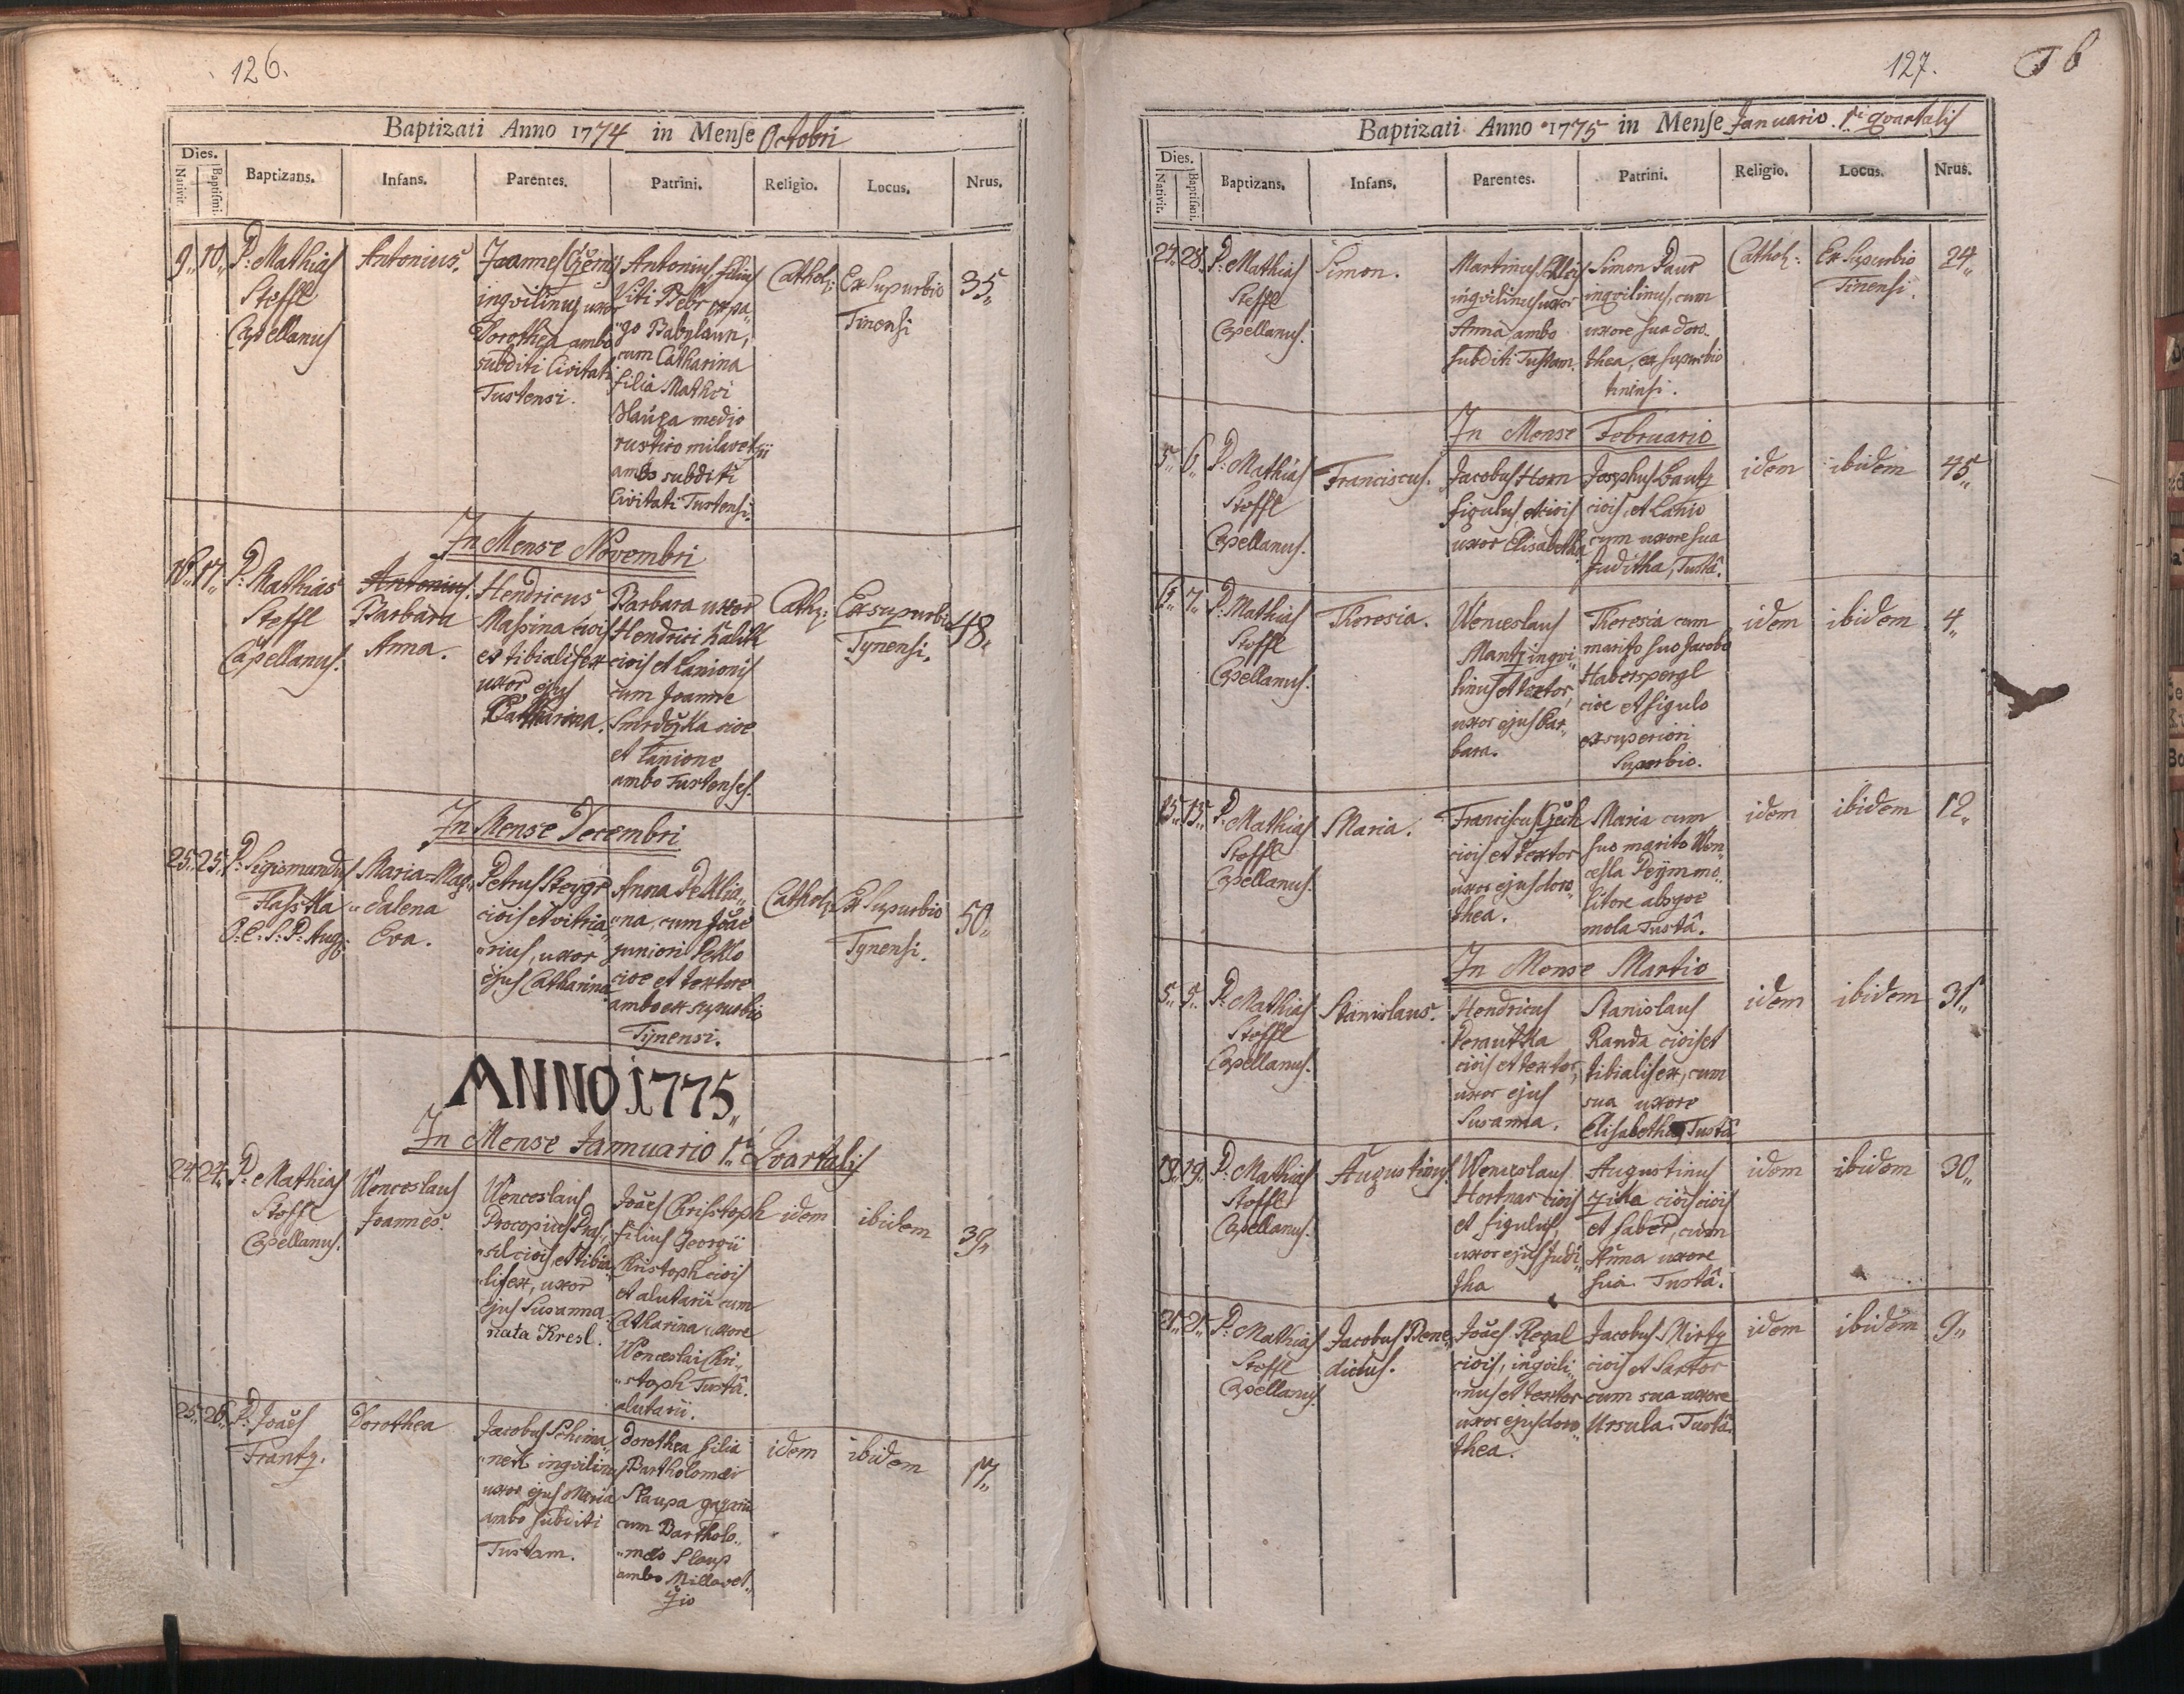 126.
Baptizati Anno 1774 in Mense Octobri
Dies.
Nativit.
Baptismi.
Baptizans.
Infans.
Parentes.
Patrini.
Religio.
Locus.
Nrus.
9,, 10,,
P: Mathias
Steffl
Capellanus
Antonius.
Joannes Czerny
inqvilinus uxor
Dorothea ambo
subditi Civitati
Tustensi.
Antonius filius
Viti Bebr ex pa,,
,,go Babylaun,
cum Catharina
filia Mathæi
medio
rustico milavetzii
ambo subditi
Civitati Tustensi.
Cathol:
Ex Supurbio
Tinensi
35,,
In Mense Novembri
17,,
P: Mathias
Steffl
Capellanus.
Antonius.
Barbara
Anna.
Hendricus
Massina civis
et tibialifex
uxor ejus
Catharina.
Barbara uxor
Hendrici Kalik
civis et Lanionis
cum Joanne
cive
et Lanione
ambo Tustenses.
Cath:
Ex supurbio
Tynensi.
48,,
In Mense Decembri
25,, 25,,
P: Sigismundus
Flasska
O: E: S: P: Aug:
Maria-Mag,,
,,dalena
Eva.
Petrus Steygr
civis et vitria,,
,,rius, uxor
ejus Catharina
Anna Peklia,,
,,na, cum Joãe
juniori Peklo
cive et textore
ambo ex supurbio
Tÿnensi.
Cathol:
Ex Supurbio
Tynensi.
50,,
ANNO 1775,,
In Mense Jannuario 1.mi Qvartalis
24,, 24,,
P: Mathias
Steffl
Capellanus.
Wenceslaus
Joannes.
Wenceslaus
Procopius Pras,,
,,sil civis et tibia,,
,,lifex, uxor
ejus Susanna
nata Kresl.
Joães Christoph
filius Georgii
Kristoph civis
et alutarii cum
Catharina uxore
Wenceslai Chri,,
,,stoph Tustâ.
alutarii.
idem
ibidem
39,,
25,, 26,,
P: Joães
Frantz.
Dorothea
Jacobus Schima,,
,,nek inqvilinus
uxor ejus Maria
ambo subditi
Tustam.
Dorothea filia
Bartholomæi
Slaupa
cum Bartholo,,
,,mæo Slaup
ambo Millavet,,
zio
idem
ibidem
17,,
127.
Baptizati Anno 1775 in Mense Januario. 1.mi qvartalis
Dies.
Nativit.
Baptismi.
Baptizans.
Infans.
Parentes.
Patrini.
Religio.
Locus.
Nrus.
27,, 28,,
P: Mathias
Steffl
Capellanus.
Simon.
Martinus
inqvilinus uxor
Anna, ambo
subditi Tustam.
Simon Paur
inqvilinus, cum
uxore sua doro,,
thea, ex supurbio
tinensi.
Cathol:
Ex Supurbio
Tinensi.
24,,
In Mense Februario
5,, 6,,
P: Mathias
Steffl
Capellanus.
Franciscus.
Jacobus Horn
figulus, et civis
uxor Elisabetha
Josephus Bautz
civis et Lanio
cum uxore sua
Juditha, Tustâ.
idem
ibidem
45,,
7,,
P: Mathias
Steffl
Capellanus.
Theresia.
Wenceslaus
Mantz inqvi,,
linus et textor,
uxor ejus Bar,,
bara.
Theresia cum
marito suo Jacobo
Haberspergl
cive et figulo
ex superiori
Supurbio.
idem
ibidem
4,,
15,, 15,,
P: Mathias
Steffl
Capellanus.
Maria.
Franciscus
civis et textor
uxor ejus doro,,
thea.
Maria cum
suo marito Wen,,
cesla Peÿm mo,,
litore absqve
mola Tustâ.
idem
ibidem
12,,
In Mense Martio
5,, 5,,
P: Mathias
Steffl
Capellanus.
Stanislaus.
Hendricus
Perautka
civis et textor,
uxor ejus
Susanna.
Stanislaus
Randa civis et
tibialifex, cum
sua uxore
Elisabetha Tustâ
idem
ibidem
31,,
19,, 19,,
P: Mathias
Steffl
Capellanus.
Augustinus.
Wenceslaus
Hortnar civis
et figulus,
uxor ejus Judi,,
tha
Augustinus
Zika civis civis
et faber, cum
Anna uxore
sua Tustâ.
idem
ibidem
30,,
21,, 21,,
P: Mathias
Steffl
Capellanus.
Jacobus Bene,,
dictus.
Joães Regal
civis, inqvili,,
,,nus et textor
uxor ejus doro,,
thea.
Jacobus Mirtz
civis et Sartor
cum sua uxore
Ursula. Tustâ.
idem
ibidem
9,,